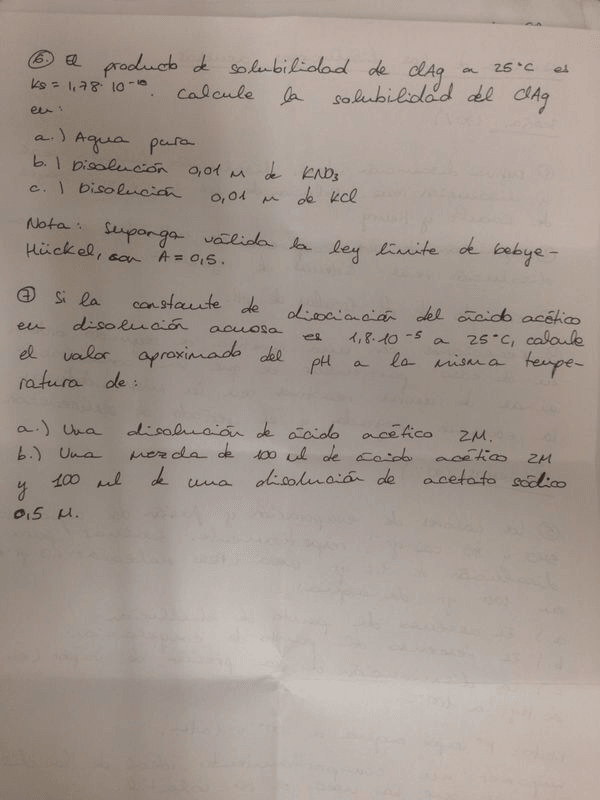 ⑥ El producto de solubilidad de ClAg a 25°C es
Ks = 1,78·10⁻¹⁰. Calcule la solubilidad del ClAg
en:
a.) Agua pura
b.) Disolución 0,01 M de KNO₃
c.) Disolución 0,01 M de KCl
Nota: Suponga válida la ley límite de Debye-
Hückel, con A = 0,5.
⑦ Si la constante de disociación del ácido acético
en disolución acuosa es 1,8·10⁻⁵ a 25°C, calcule
el valor aproximado del pH a la misma tempe-
ratura de:
a.) Una disolución de ácido acético 2M.
b.) Una mezcla de 100 ml de ácido acético 2M
y 100 ml de una disolución de acetato sódico
0,5 M.